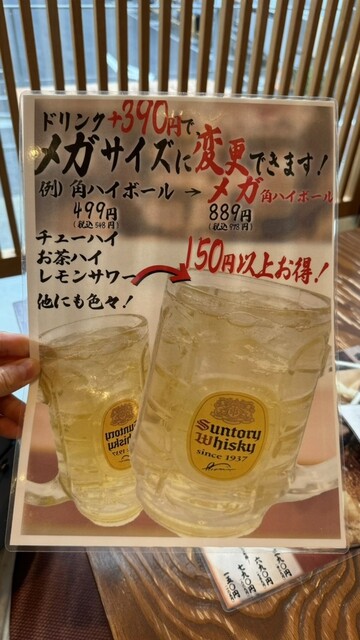 ドリンク+390円で、
メガサイズに変更できます!
例) 角ハイボール → メガ角ハイボール
499円 889円
(税込548円) (税込978円)
チューハイ
お茶ハイ
レモンサワー
150円以上お得!
他にも色々!
Suntory
Whisky
Suntory
Whisky
since 1937